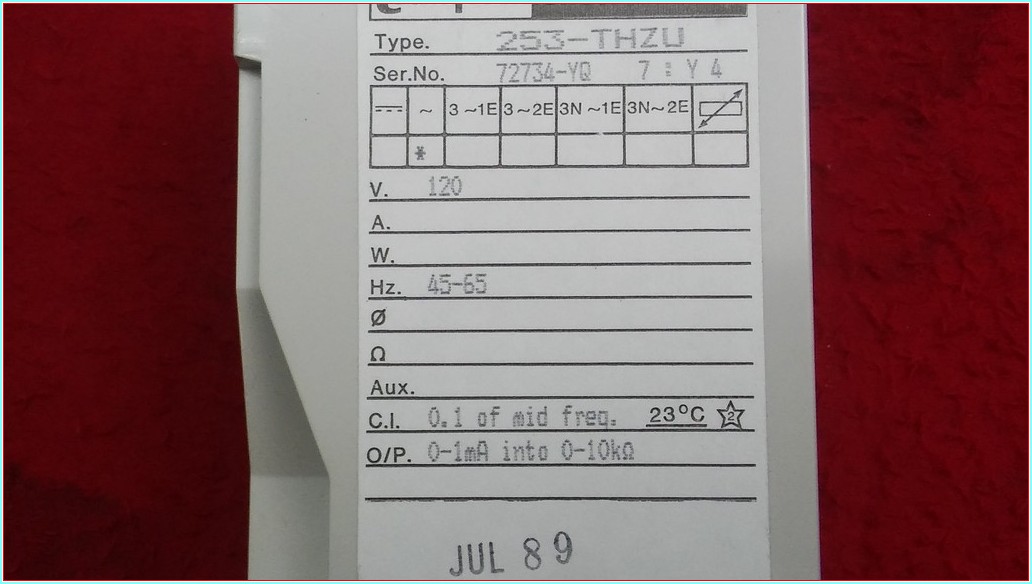 Type. 253-THZU
Ser.No. 72734-YQ 7 : Y 4
~ 3~1E 3~2E 3N~1E 3N~2E
*
V. 120
A.
W.
Hz. 45-65
Ø
Ω
Aux.
C.I. 0.1 of mid freq. 23°C 2
O/P. 0-1mA into 0-10kΩ
JUL 89